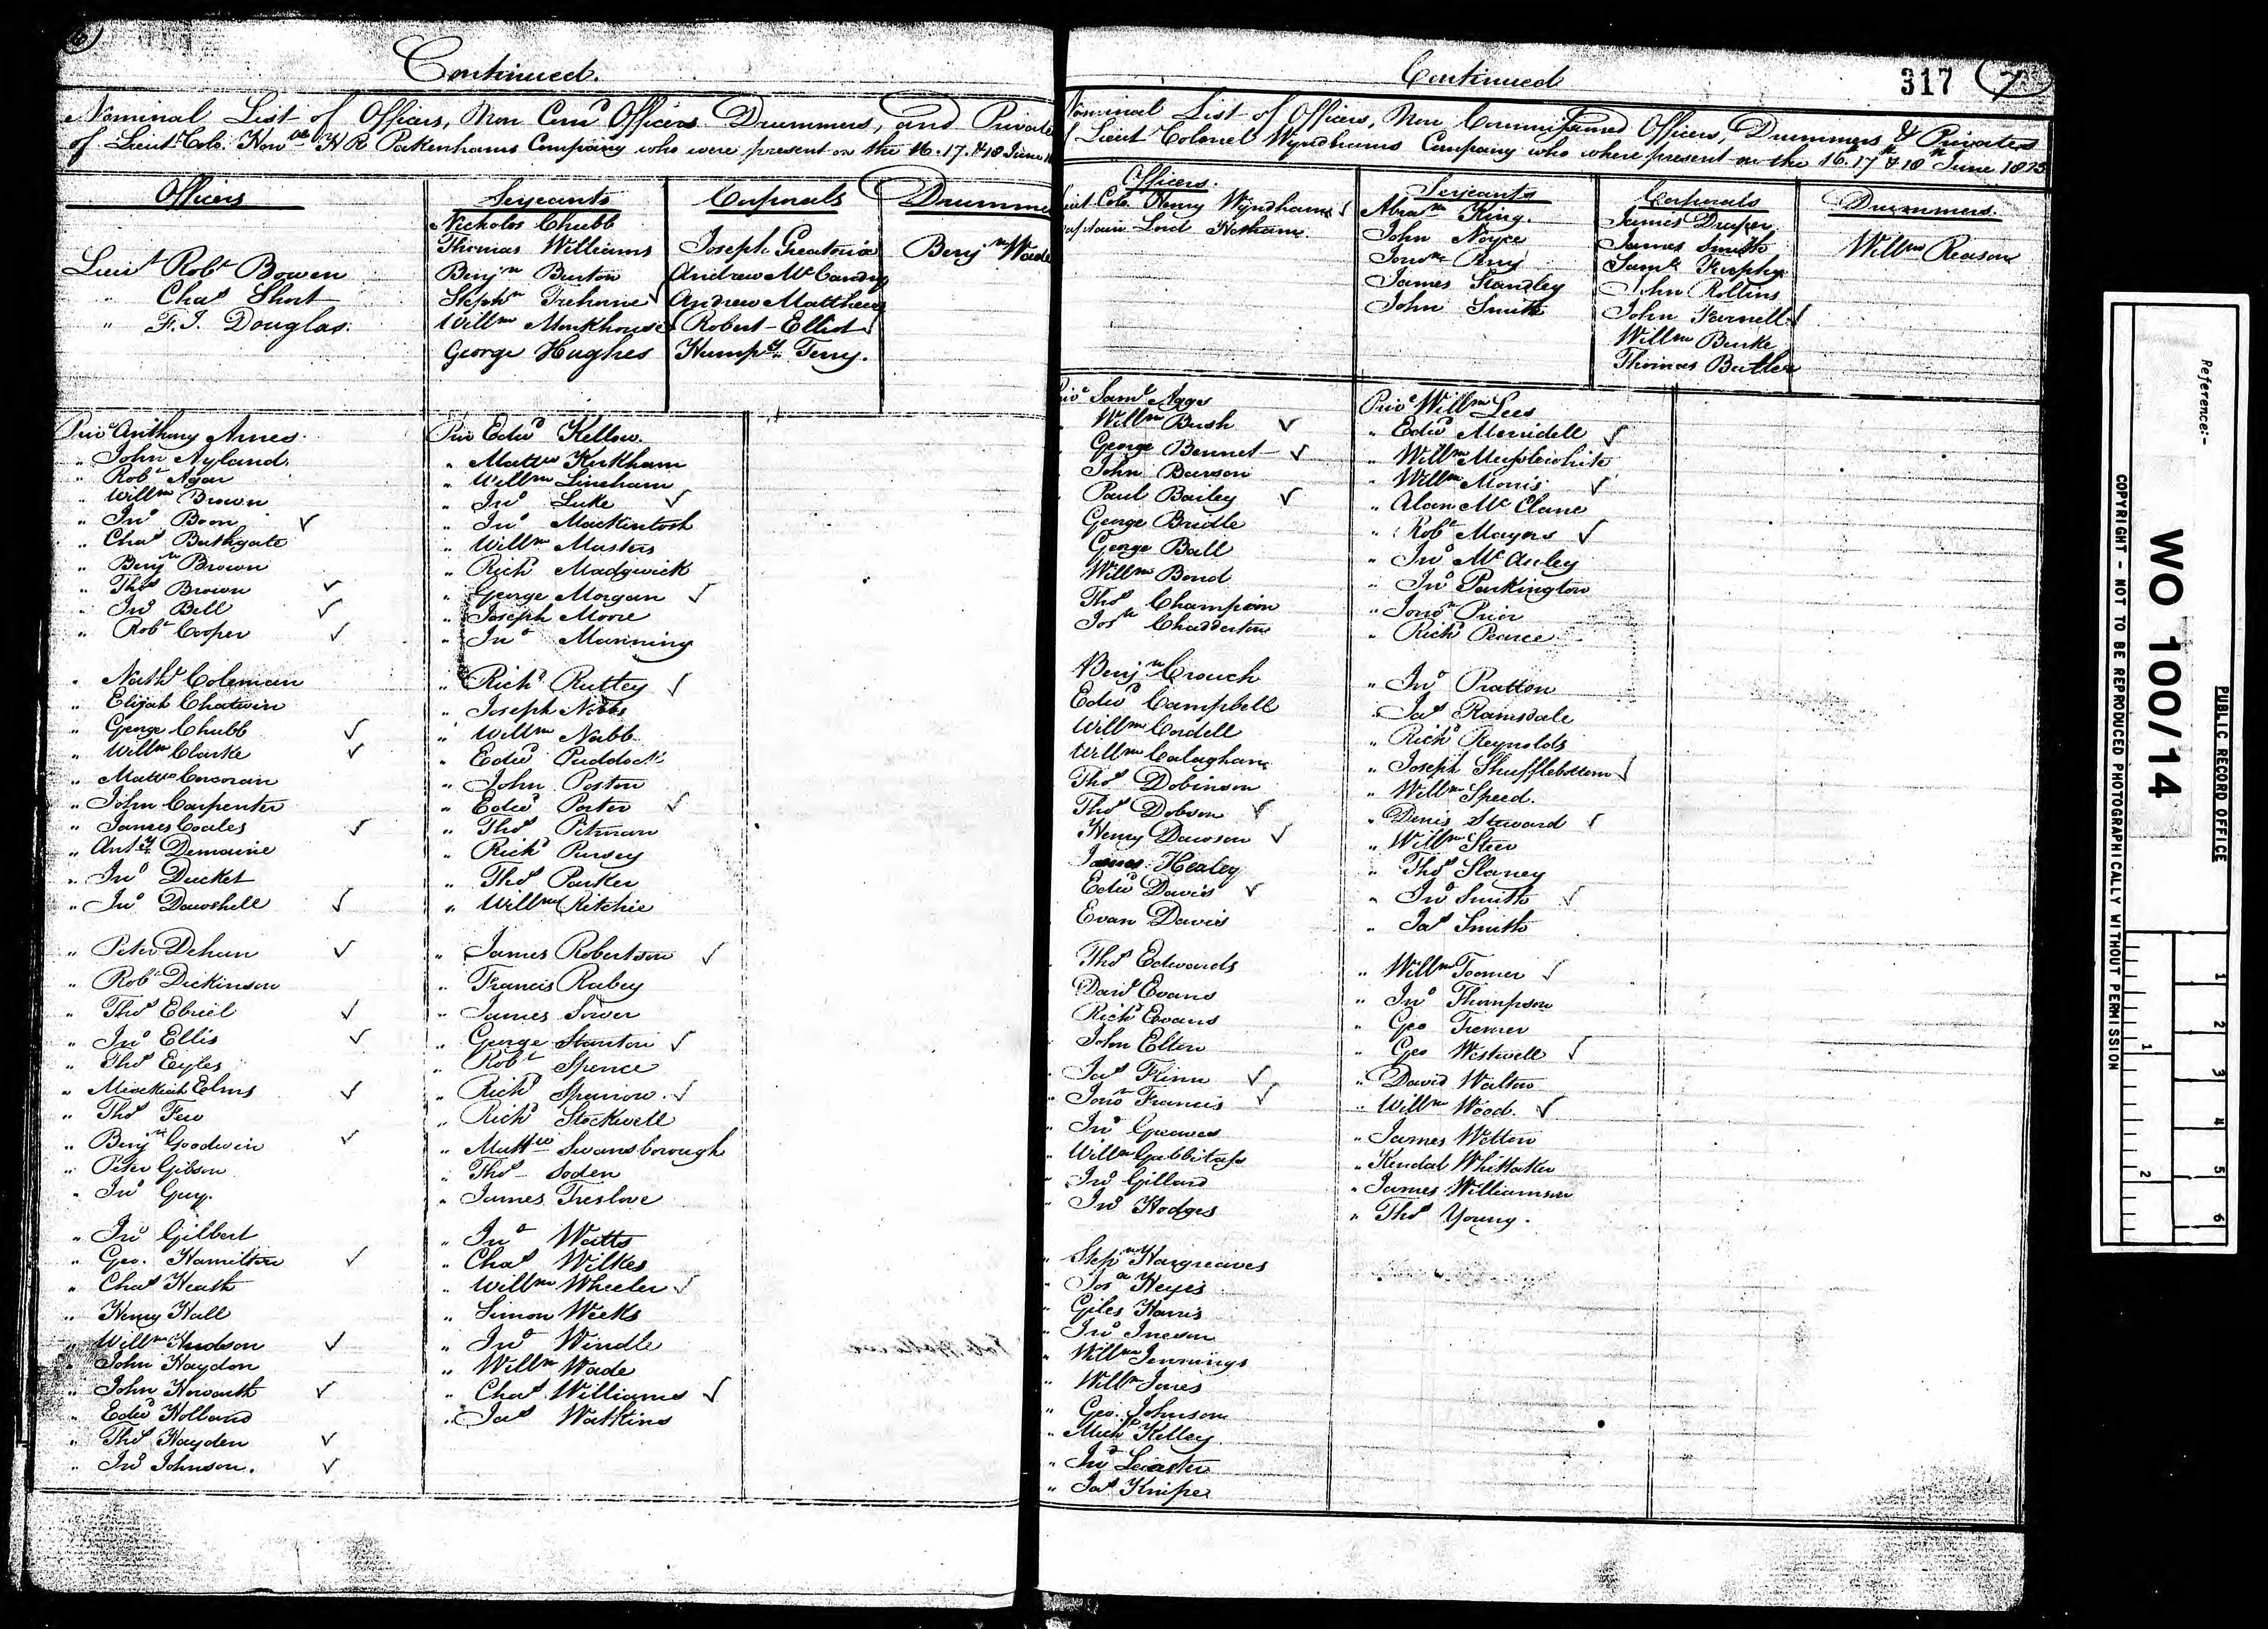 6
Continued.
Nominal List of Officers, Non Comd Officers Drummers, and Private
of Lieut Colo. Honble H R Pakenhams Company who were present on the 16. 17. & 18 June
Officers
Lieut Robt Bowen
" Chas Short
" F. J. Douglas
Serjeants
Nicholas Chubb
Thomas Williams
Benjn Burton
Stephn Trehorne
Willm Monkhouse
George Hughes
Corporals
Joseph Greatorix
Andrew McCandry
Andrew Matthews
Robert Elliot
Humpy. Terry.
Drumme
Benjn Wade
Priv Anthony Ames
" John Ayland
" Robt Agar
" Willm Brown
" Jno Boon ✓
" Chas Bathgate
" Benjn Brown
" Thos Brown ✓
" Jno Bell ✓
" Robt Cooper ✓
" Nathl Coleman
" Elijah Chatwin
" George Chubb ✓
" Willm Clarke ✓
" Mattw Corcoran
" John Carpenter
" James Coales ✓
" Anty Demaine
" Jno Ducket
" Jno Dawshell ✓
" Peter Dehan ✓
" Robt Dickinson
" Thos Ebriel ✓
" Jno Ellis ✓
" Thos Eyles
" Elms ✓
" Thos Few
" Benjn Goodwin ✓
" Peter Gibson
" Jno Guy.
" Jno Gilbert
" Geo. Hamilton ✓
" Chas Heath
" Henry Hall
" Willm Hudson ✓
" John Haydon
" John Howarth ✓
" Edwd Holland
" Thos Hayden ✓
" Jno Johnson. ✓
Priv Edwd Kellow.
" Mattw Kirkham
" Willm Lineham
" Jno Luke ✓
" Jno Mackintosh
" Willm Masters
" Richd Madgwick
" George Morgan ✓
" Joseph Moore
" Jno Manning
" Richd Ruttey ✓
" Joseph Nobbs
" Willm Nabb
" Edwd Puddock
" John Poston
" Edwd Porter ✓
" Thos Pitman
" Richd Pursey
" Thos Parker
" Willm Ritchie
" James Robertson ✓
" Francis Rubey
" James Sower
" George Stanton ✓
" Robt Spence
" Richd Sparrow. ✓
" Richd Stockwell
" Mattw Swansborough
" Thos Soden
" James Treslove
" Jno Watts
" Chas Wilkes
" Willm Wheeler ✓
" Simon Weeks
" Jno Windle
" Willm Wade
" Chas Williams ✓
" Jas Watkins
Continued
317
7
Nominal List of Officers, Non Commissioned Officers, Drummers & Privates
Lieut Colonel Wyndhams Company who where present on the 16th 17 & 18th June 1815
Officers.
Colo Henry Wyndham ✓
Lord Hotham
Serjeants
Abram King.
John Noyce
Jonn Perry
James Standley
John Smith
Corporals
James Draper
James Smith
Saml Turphy
John Rollins
John Farnell ✓
Willm Burke
Thomas Butler
Drummers.
Willm Reason
Saml Agges
Willm Bush ✓
George Bennet ✓
John Barson
Paul Bailey ✓
George Bridle
George Ball
Willm Bond
Thos Champion
Josh Chadderton
Benjn Crouch
Edwd Campbell
Willm Cordell
Willm Calaghan
Thos Dobinson
Thos Dobson ✓
Henry Dawson ✓
James Healey
Edwd Davis ✓
Evan Davis
Thos Edwards
David Evans
Richd Evans
John Elton
Jas Flinn ✓
Jonn Francis ✓
Jno Greaves
Willm Gabbitass
Jno Gillard
" Jno Hodges
" Stepn Hargreaves
" Josa Heyes
" Giles Harris
" Jno Ineson
" Willm Jennings
" Willm Jones
" Geo. Johnson
" Michl Kelley
" Jno Leicester
" Jas Kniper
Priv Willm Lees
" Edwd Merridell ✓
" Willm Musslewhite
" Willm Morris ✓
" Alan McClane
" Robt Mayors ✓
" Jno McAuley
" Jno Parkington
" Jonn Prior
" Richd Pearce
" Jno Pratton
" Jas Ramsdale
" Richd Reynolds
" Joseph Shufflebottom ✓
" Willm Speed.
" Denis Steward ✓
" Willm Steer
" Thos Slaney
" Jno Smith ✓
" Jas Smith
" Willm Toomer ✓
" Jno Thompson
" Geo Tremer
" Geo Westwell ✓
" David Walton
" Willm Wood. ✓
" James Wetton
" Kendal Whittaker
" James Williamson
" Thos Young.
Reference:-
PUBLIC RECORD OFFICE
WO 100/14
COPYRIGHT - NOT TO BE REPRODUCED PHOTOGRAPHICALLY WITHOUT PERMISSION
1
2
3
4
5
6
1
2